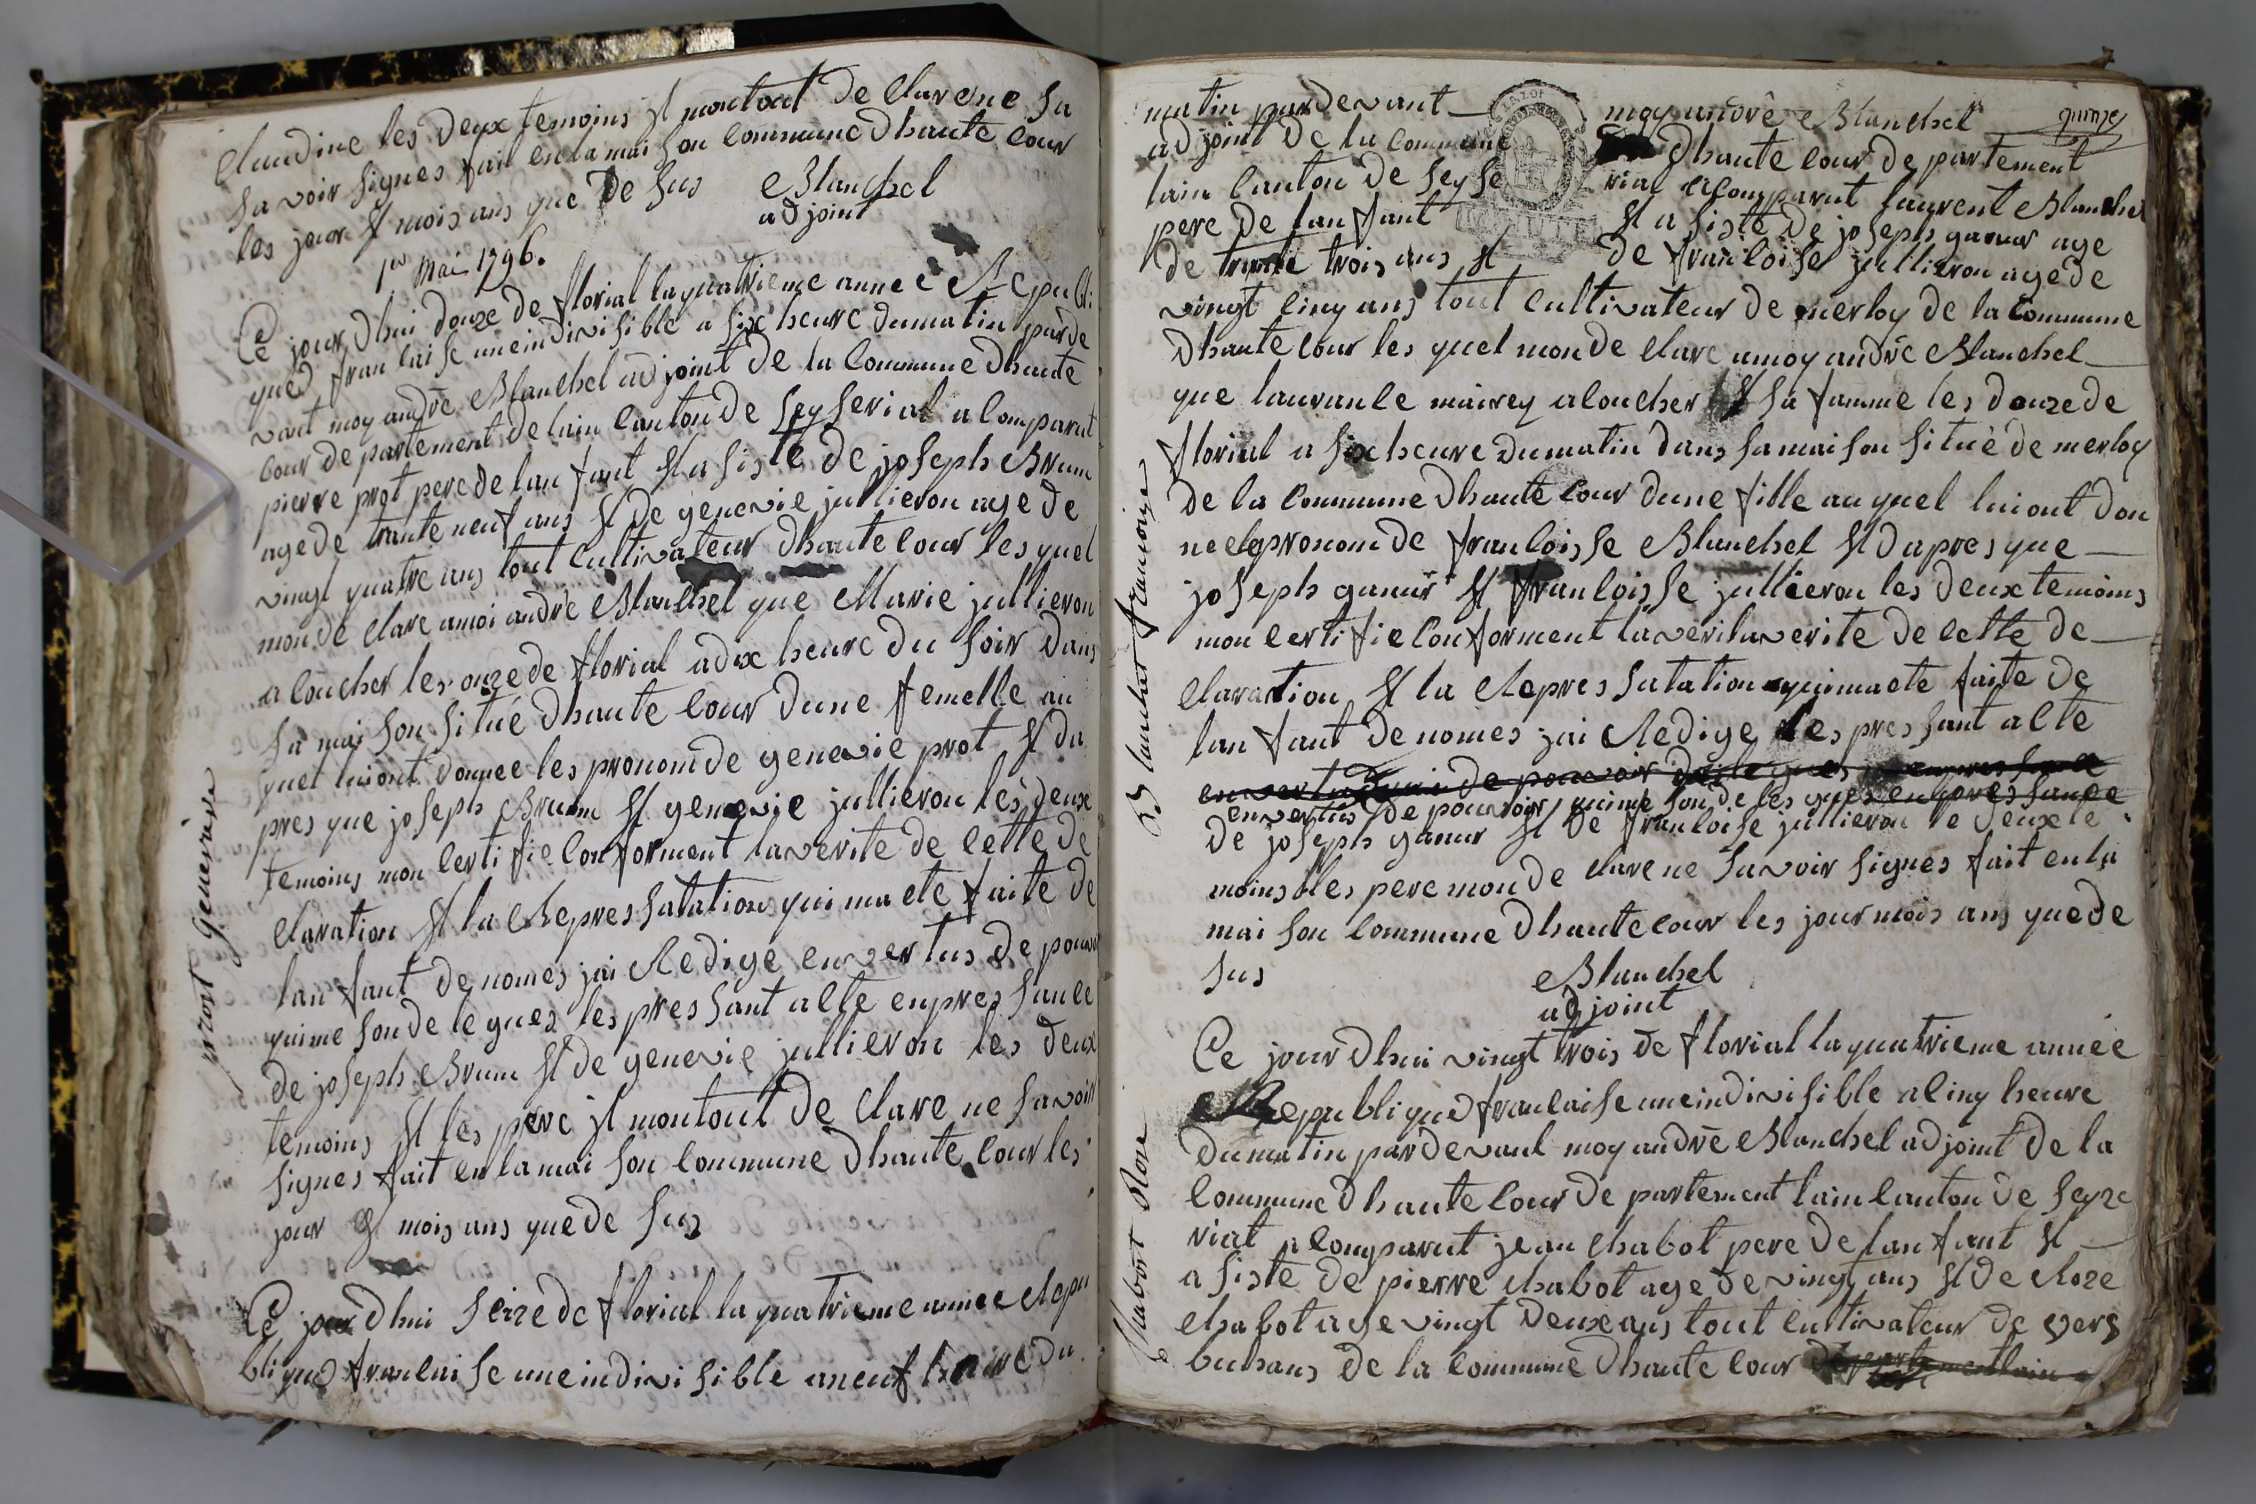 Claudine les deux temoins et montout de Clare ne sa
savoir signes fait en la mai son commune dhaute cour
les jour et mois ans que de sus
Blanchet
adjoint
1er Mai 1796.
Ce jour dhui douze de florial la quatrieme annee Republi
que francaise une indivisible a six heure du matin parde
vant moy andré Blanchet adjoint de la Commune dhaute
cour departement de lain canton de seyserial a comparut
pierre prot pere de lan fant et a sisté de joseph Brum
age de trante neuf ans et de genevie jullieron age de
vingt quatre ans tout cultivateur dhaute cour les quel
mon de clare a moi andré Blanchet que Marie jullieron
a coucher les onze de florial a dix heure du soir dans
sa mai son situé dhaute cour dune femelle au
quel lui ont donnee les pronom de genevie prot et da
pres que joseph Brum et genevie jullieron les deux
temoins mon certifie conforment la verite de cette de
claration et la Repressatation qui ma ete faite de
lan fant de nomes jai Redige en vertus de pouvoir
qui me son de legues les pressant acte en pressance
de joseph Brum et de genevie jullieron les deux
temoins et les pere et montout de clare ne savoir
signes fait en la mai son commune dhaute cour les
jour et mois ans que de sus
prost Genevieve
Ce jour dhui seize de florial la quatrieme annee Repu
blique francaise une indivisible a neuf heure du
quinze
matin par devant moy andré Blanchet
adjoint de la commune dhaute cour departement
lain canton de seyse riat a comparut laurent Blanchet
pere de lan fant et a sisté de joseph ganur age
de trante trois ans et de francoise jullieron age de
vingt cinq ans tout cultivateur de merloy de la Commune
dhaute cour les quel mon de clare a moy andré Blanchet
que laurance mairey a coucher et sa famme les douze de
florial a six heure du matin dans sa maison situé de merloy
de la commune dhaute cour dune fille au quel lui ont don
nee le pronom de francoisse Blanchet et dapres que
joseph ganur et francoisse jullieron les deux temoins
mon certifie conforment la veri la verite de cette de
claration et la Repressatation qui ma ete faite de
lan fant de nomes jai Redige les pressant acte
en vertus de pouvoir qui me son de les gues en pressance
de joseph ganur et de francoise jullieron le deux te
moins les pere mon de clare ne savoir signes fait en la
mai son commune dhaute cour les jour mois ans que de
sus
Blanchet
adjoint
Blanchet francoise
Ce jour dhui vingt trois de florial la quatrieme année
Republique francaise une indivisible a cinq heure
du matin par devant moy andré Blanchet adjoint de la
commune dhaute cour departement lain canton de seyze
riat a comparut jean chabot pere de lan fant et
a sisté de pierre chabot age de vingt ans et de Roze
chabot age vingt deux ans tout cultivateur de vers
buhans de la commune dhaute cour
Chabot Rose